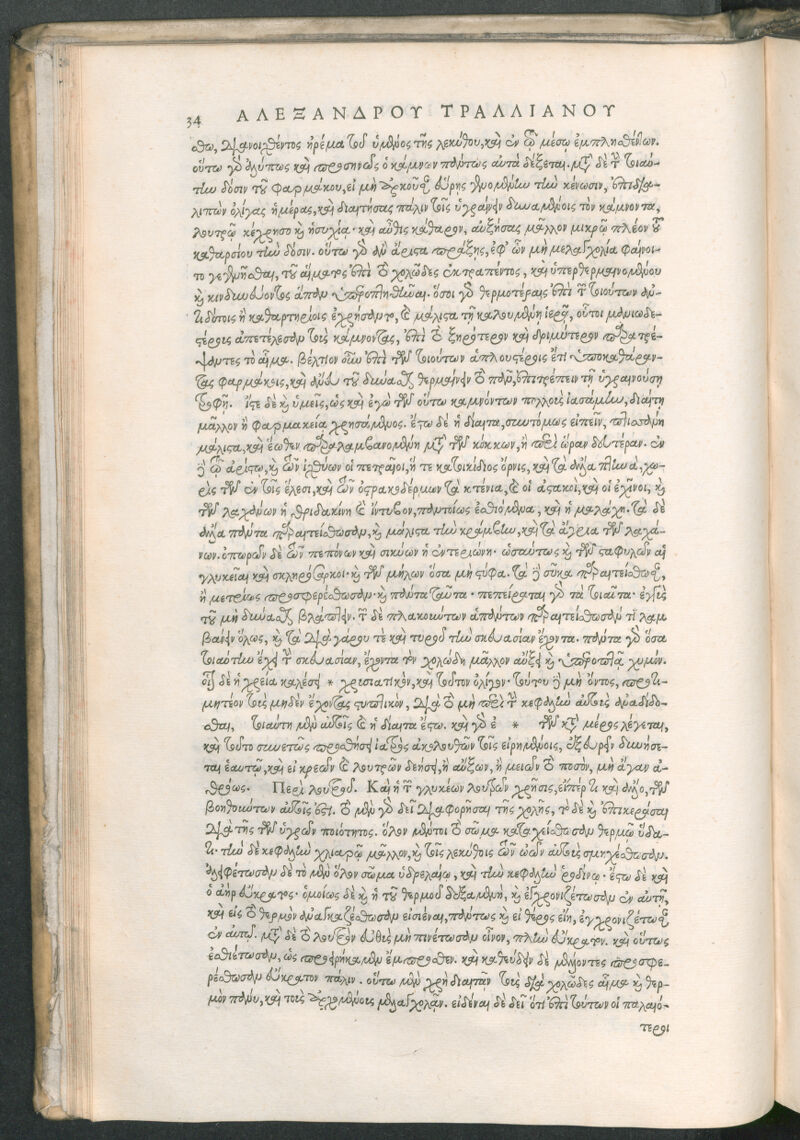 34 ΑΛΕΞΑΝΔΡΟΥ ΤΡΑΛΛΙΑΝΟΥ
σθω, διανοιχθέντος ἠρέμα τοῦ ὑμένος τῆς λεκύθου, καὶ ἐν τῷ μέσῳ ἐμπλησθέντων.
οὕτω γὰρ ἀλύπως καὶ προσηνῶς ὁ κάμνων πάντως αὐτὰ δέξεται. μετὰ δὲ τὴν τοιαύ-
την δόσιν τοῦ φαρμάκου, εἰ μὴ ἀρκοῦσαν εὕρης γενομένην τὴν κένωσιν, ἐπιδια-
λιπὼν ὀλίγας ἡμέρας, καὶ διαιτήσας πάλιν τοῖς ὑγραίνειν δυναμένοις τὸν κάμνοντα,
λουτρῷ κέχρησο καὶ ἡσυχίᾳ· καὶ αὖθις κάθαρον, αὐξήσας μᾶλλον μικρῷ πλέον τοῦ
καθαρσίου τὴν δόσιν. οὕτω γὰρ ἂν ἄριστα πράξης, ἐφ' ὧν μὴ μελαγχολία φαίνοι-
το γεγενῆσθαι, τοῦ αἵματος ἐπὶ τὸ χολῶδες ἐκτραπέντος, καὶ ὑπερθερμαινομένου
καὶ κινδυνεύοντος ἅπαν ὑπεροπτηθῆναι. ὅσοι γὰρ θερμοτέραις ἐπὶ τῶν τοιούτων ἀν-
τιδότοις ἢ καθαρτηρίοις ἐχρήσαντο, καὶ μάλιστα τῇ καλουμένῃ ἱερᾷ, οὗτοι μανιωδε-
στέρους ἀπετέλεσαν τοὺς κάμνοντας, ἐπὶ τὸ ξηρότερον καὶ δριμύτερον παρατρέ-
ψαντες τὸ αἷμα. βέλτιον οὖν ἐπὶ τῶν τοιούτων ἁπλουστέροις ἔτι ὑποκαθάραν-
τας φαρμάκοις, καὶ ἄνευ τοῦ δύνασθαι θερμαίνειν τὸ πᾶν, ἐπιτρέπειν τῇ ὑγραινούσῃ
τροφῇ. ἴστε δὲ καὶ ὑμεῖς, ὡς καὶ ἐγὼ τῶν οὕτω καμνόντων πολλοὺς ἰασάμην, διαίτῃ
μᾶλλον ἢ φαρμακείᾳ χρησάμενος. ἔστω δὲ ἡ δίαιτα, συντόμως εἰπεῖν, πτισάνη
μάλιστα, καὶ ἕωθεν παραλαμβανομένη μετὰ τῶν κόκκων, ἢ περὶ ὥραν δευτέραν. ἐν
δὲ τῷ ἀρίστῳ, καὶ τῶν ἰχθύων οἱ πετραῖοι, ἥ τε κατοικίδιος ὄρνις, καὶ τὰ ἄλλα πτηνά, χω-
ρὶς τῶν ἐν τοῖς ἕλεσι, καὶ τῶν ὀστρακοδέρμων τὰ κτένια, καὶ οἱ ἀστακοί, καὶ οἱ ἐχῖνοι, καὶ
τῶν λαχάνων ἡ θριδακίνη καὶ ἴντυβον, παντοίως ἐσθιόμενα, καὶ ἡ μαλάχη. τὰ δὲ
ἄλλα πάντα παραιτείσθωσαν, καὶ μάλιστα τὴν κράμβην, καὶ τὰ ἄγρια τῶν λαχά-
νων. ὀπωρῶν δὲ τῶν πεπόνων καὶ σικύων ἡ ἐντεριώνη· ὡσαύτως καὶ τῶν σταφυλῶν αἱ
γλυκεῖαι καὶ σκληρόσαρκοι· καὶ τῶν μήλων ὅσα μὴ στύφα. τὰ δὲ σῦκα παραιτείσθωσαν,
ἢ μετρίως προσφερέσθωσαν· καὶ πάντα ταῦτα· πεπείραται γὰρ τὰ τοιαῦτα· ἐγγὺς
τοῦ μὴ δύνασθαι βλάπτειν. τῶν δὲ πλακούντων ἁπάντων παραιτείσθωσάν τι λαμ
βάνειν ὅλως, καὶ τὰ διὰ γάρου τὲ καὶ τυροῦ τὴν σκευασίαν ἔχοντα. πάντα γὰρ ὅσα
τοιαύτην ἔχει τὴν σκευασίαν, ἔχοντα τὸν χολώδη μᾶλλον αὔξει καὶ ὑπεροπτᾷ χυμόν.
εἰ δὲ ἡ χρεία καλέσει * χρισιατικόν, καὶ τοῦτον ὀλίγον· τούτου δὲ μὴ ὄντος, προτι-
μητέον τοὺς μηδὲν ἔχοντας στυπτικόν, διὰ τὸ μὴ περὶ τὴν κεφαλὴν αὐτοὺς ἀναδίδο-
σθαι, τοιαύτη μὲν αὐτοῖς καὶ ἡ δίαιτα ἔστω. καὶ γὰρ ἐ * τῶν κατὰ μέρος λέγεται,
καὶ τοῦτο συνετῶς προσθήσει ἰατρὸς ἀκολουθῶν τοῖς εἰρημένοις, ἐξευρεῖν δυνήσε-
ται ἑαυτῷ, καὶ εἰ κρεῶν καὶ λουτρῶν δεήσει, ἢ αὔξων, ἢ μειῶν τὸ ποσόν, μὴ ἄγαν ἀ-
θρόως. Περὶ λουτροῦ. Καὶ ἡ τῶν γλυκέων λουτρῶν χρῆσις, εἴπέρ τι καὶ ἄλλο, τῶν
βοηθούντων αὐτοῖς ἐστι. τὸ μὲν γὰρ δεῖ διαφορῆσαι τῆς χολῆς, τὸ δὲ καὶ ἐπικεράσαι
διὰ τῆς τῶν ὑγρῶν ποιότητος. ὅλον μέντοι τὸ σῶμα καταχείσθωσαν θερμῷ ὕδα-
τι· τὴν δὲ κεφαλὴν χλιαρῷ μᾶλλον, καὶ τοῖς λεκύθοις τῶν ὠῶν αὐτοὺς σμηχέσθωσαν.
ἀλειφέτωσαν δὲ τὸ μὲν ὅλον σῶμα ὑδρελαίῳ, καὶ τὴν κεφαλὴν ῥοδίνῳ· ἔστω δὲ καὶ
ὁ ἀὴρ εὔκρατος· ὁμοίως δὲ καὶ ἡ τοῦ θερμοῦ δεξαμένη, καὶ ἐγχρονιζέτωσαν ἐν αὐτῇ,
καὶ εἰς τὸ θερμὸν ἀναγκαζέσθωσαν εἰσιέναι, πάντως καὶ εἰ θέρος εἴη, ἐγχρονιζέτωσαν
ἐν αὐτῷ. μετὰ δὲ τὸ λουτρὸν εὐθὺς μὴ πινέτωσαν οἶνον, πλὴν εὔκρατον. καὶ οὕτως
ἐσθιέτωσαν, ὡς προειρήκαμεν ἔμπροσθεν. καὶ καθεύδειν δὲ μέλλοντες προσφε-
ρέσθωσαν εὔκρατον πάλιν. οὕτω μὲν χρὴ διαιτᾶν τοὺς διὰ χολῶδες αἷμα καὶ θερ-
μὸν πάνυ, καὶ τοὺς ἀρχομένους μελαγχολᾶν. εἰδέναι δὲ δεῖ ὅτι ἐπὶ τούτων οἱ παλαιό-
τεροι